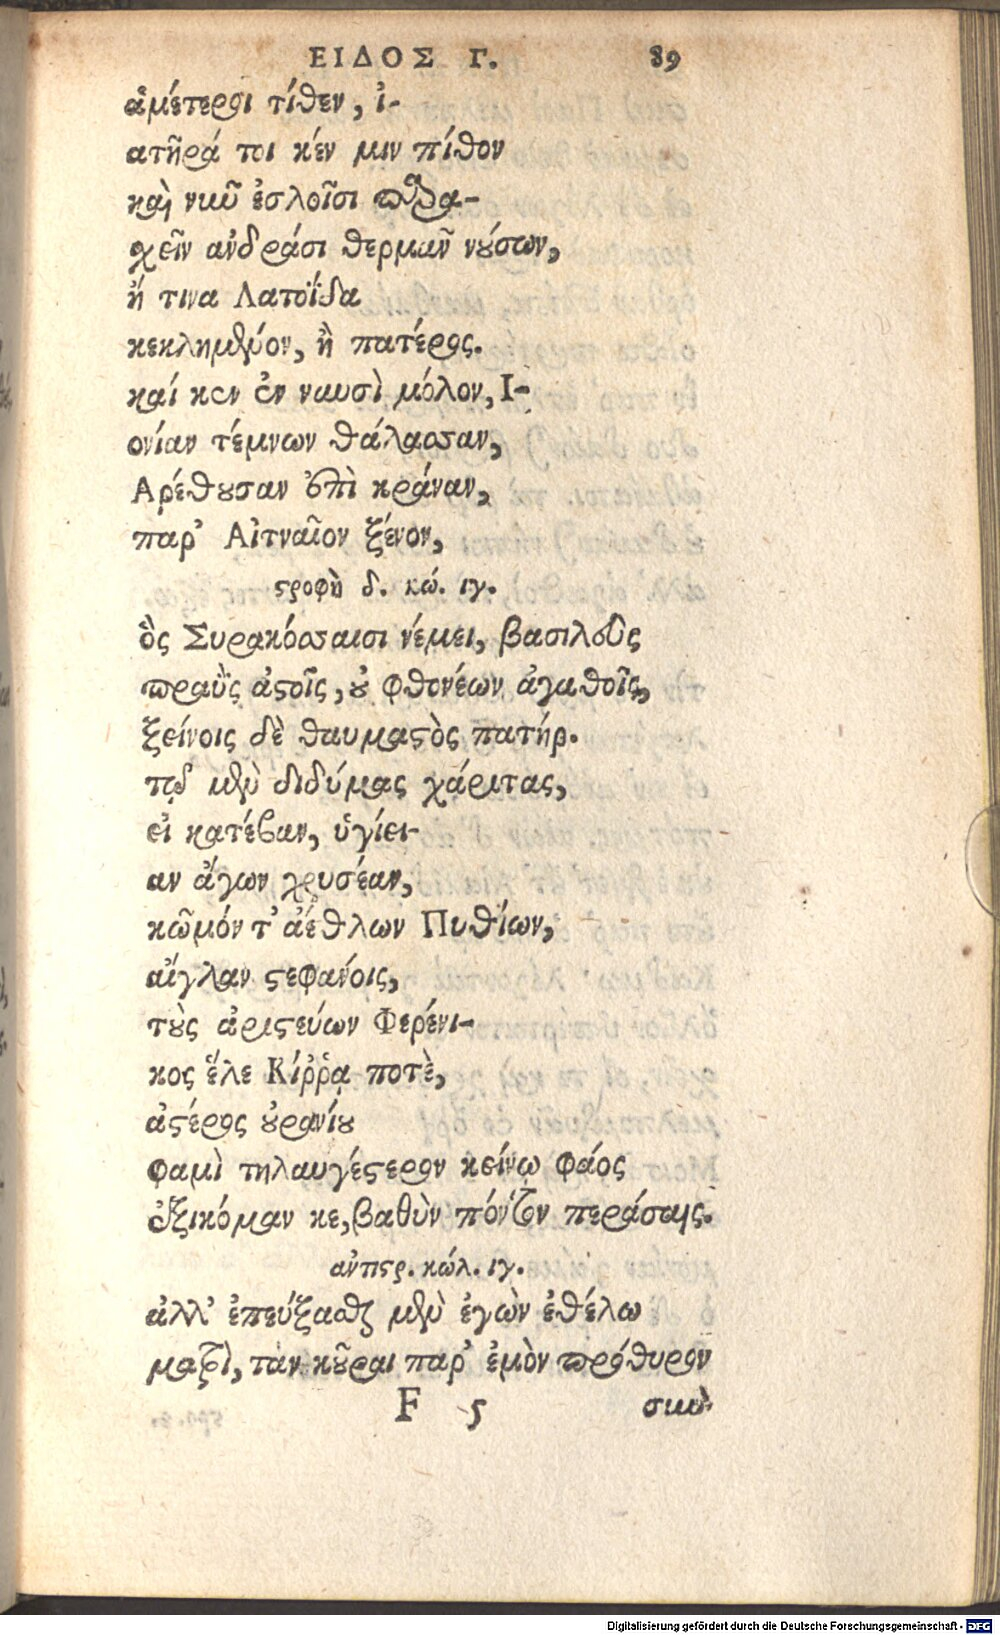 ΕΙΔΟΣ Γ. 89
ἁμέτεροι τίθεν, ἰ-
ατῆρά τοι κέν μιν πίθον
καὶ νῦν ἐσλοῖσι παρα-
χεῖν ἀνδράσι θερμᾶν νούσων,
ἤ τινα Λατοΐδα
κεκλημένον, ἢ πατέρος.
καί κεν ἐν ναυσὶ μόλον, Ι-
ονίαν τέμνων θάλασσαν,
Αρέθουσαν ἐπὶ κράναν,
παρ' Αἰτναῖον ξένον,
στροφὴ δ. κώ. ιγ.
ὃς Συρακόσσαισι νέμει, βασιλεὺς
πραῢς ἀστοῖς, οὐ φθονέων ἀγαθοῖς,
ξείνοις δὲ θαυμαστὸς πατήρ.
τῷ μὲν διδύμας χάριτας,
εἰ κατέβαν, ὑγίει-
αν ἄγων χρυσέαν,
κῶμόν τ' ἀέθλων Πυθίων,
αἴγλαν στεφάνοις,
τοὺς ἀριστεύων Φερένι-
κος ἕλε Κίῤῥᾳ ποτὲ,
ἀστέρος οὐρανίου
φαμὶ τηλαυγέστερον κείνῳ φάος
ἐξικόμαν κε, βαθὺν πόντον περάσαις.
ἀντιστρ. κώλ. ιγ.
ἀλλ' ἐπεύξασθαι μὲν ἐγὼν ἐθέλω
ματρὶ, τὰν κοῦραι παρ' ἐμὸν πρόθυρον
F 5 σὺν
Digitalisierung gefördert durch die Deutsche Forschungsgemeinschaft - DFG